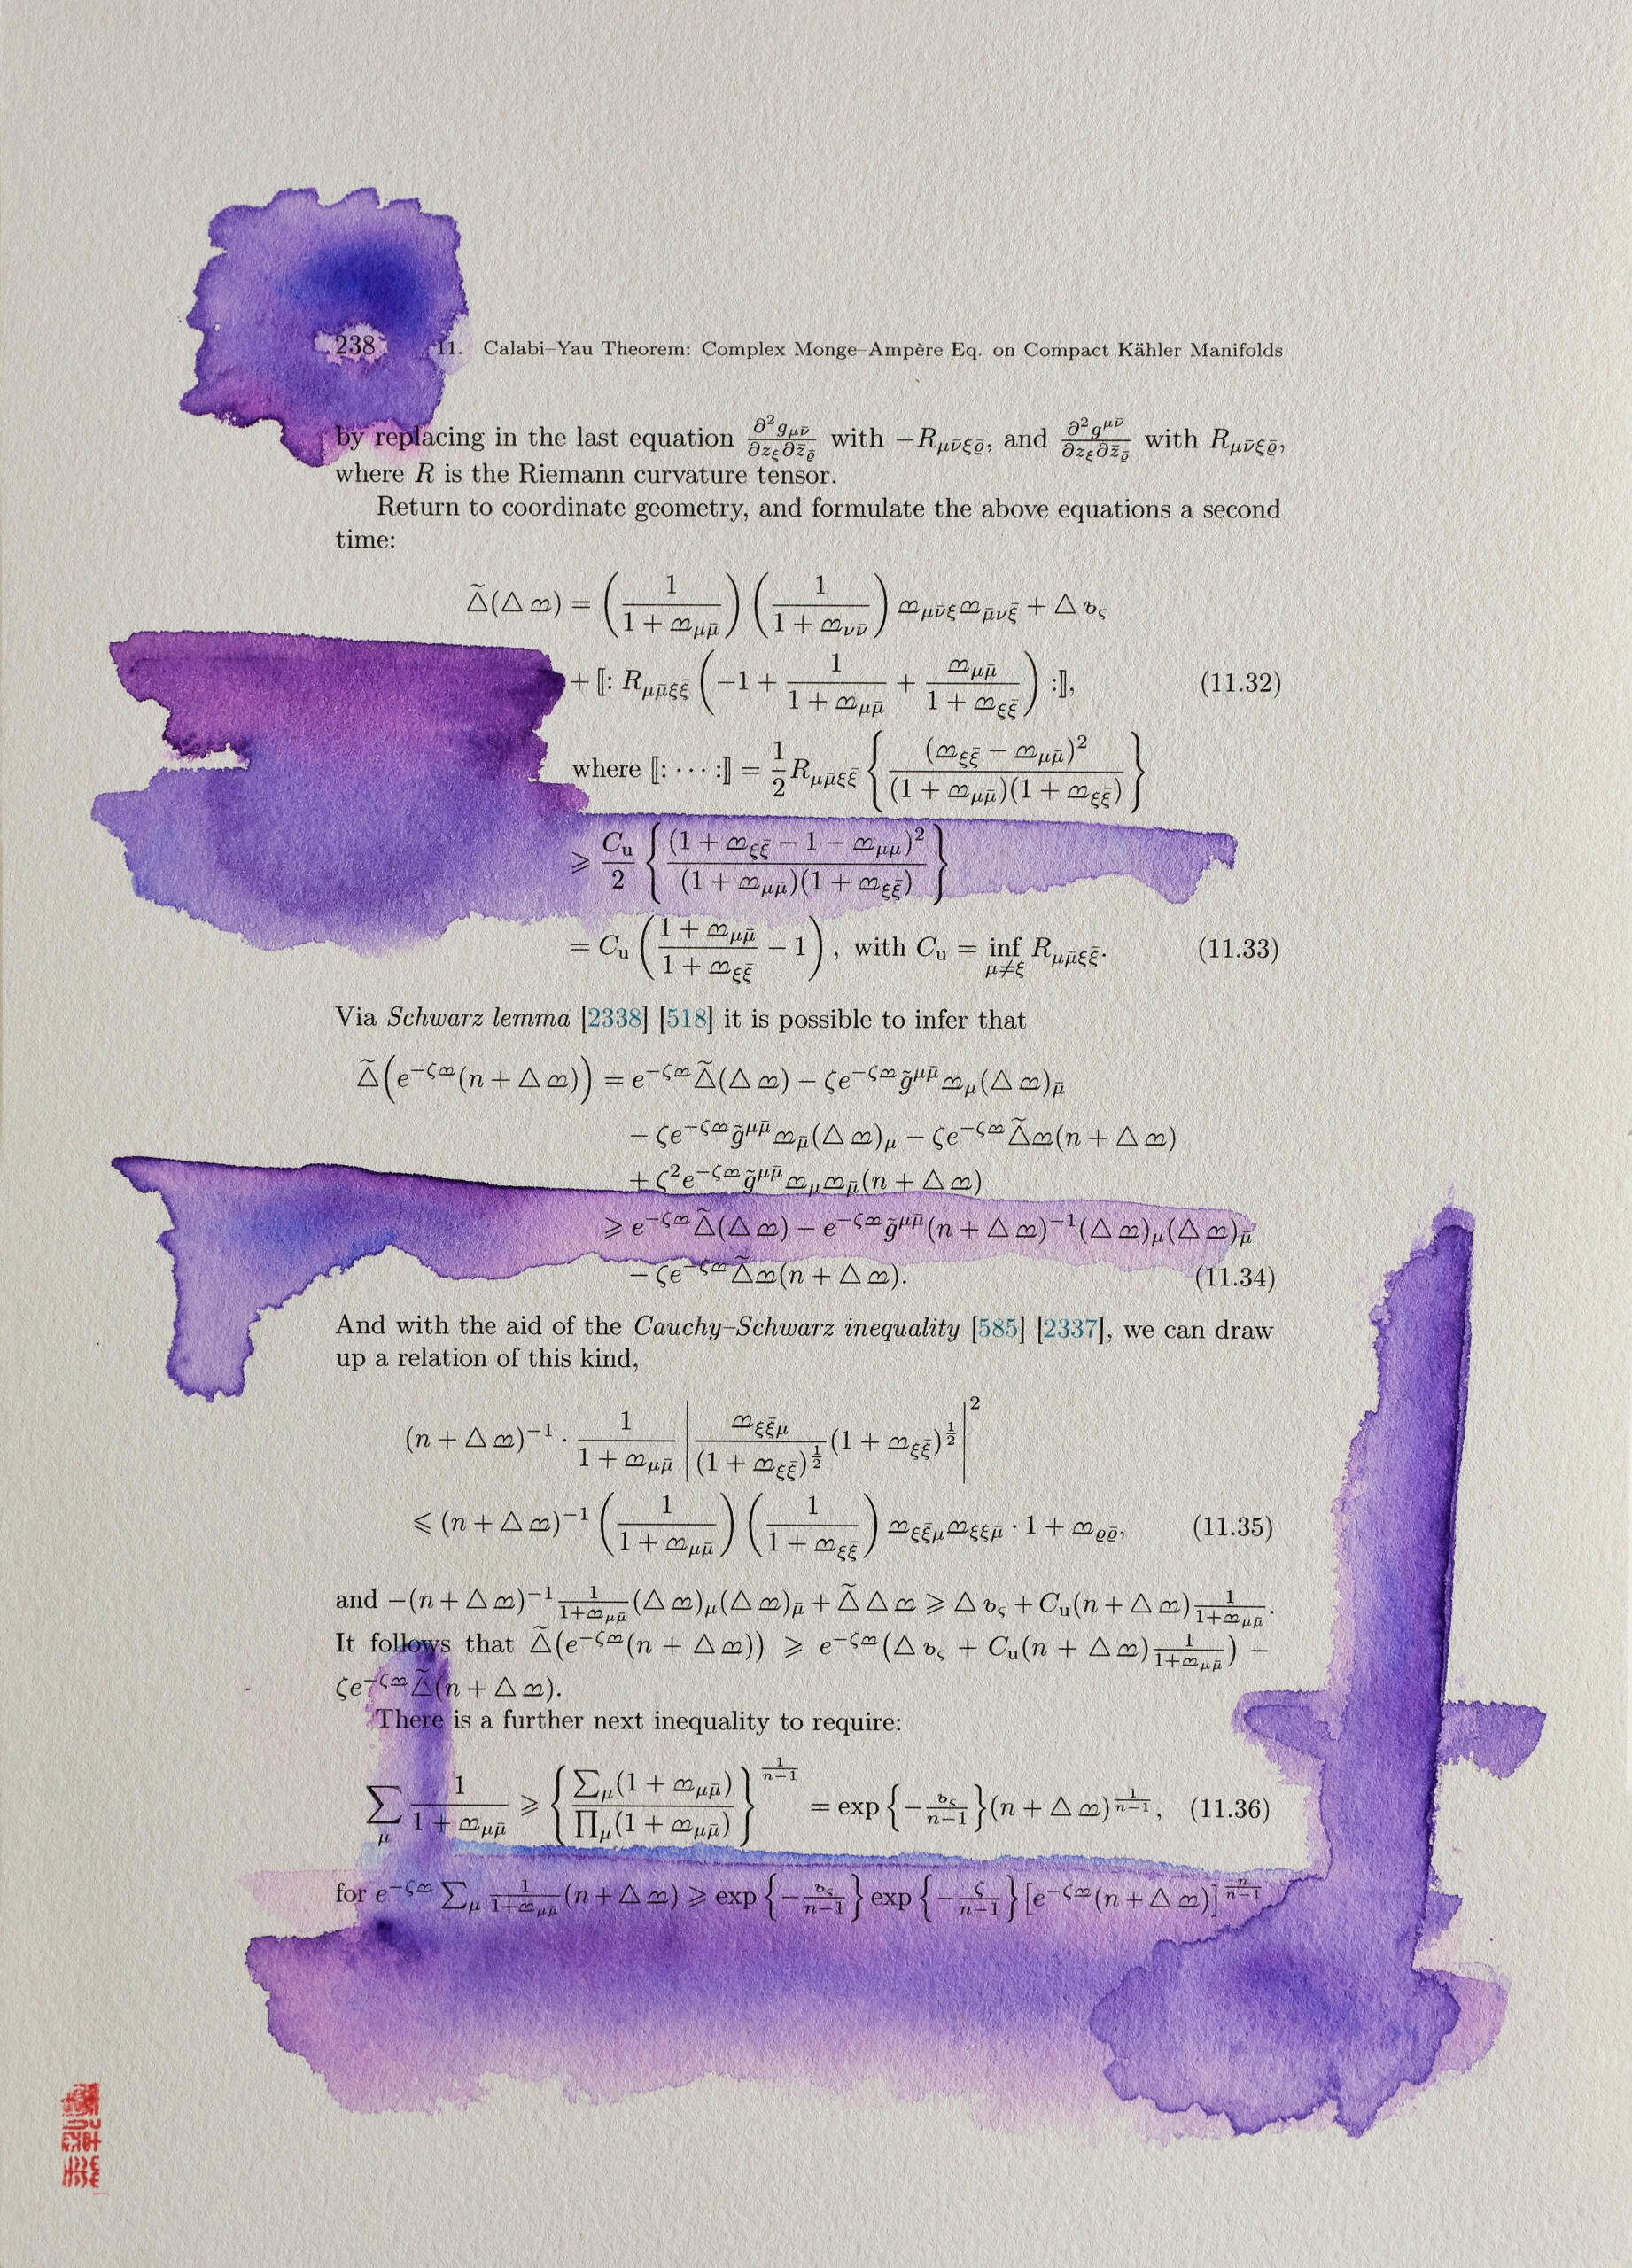 238 11. Calabi–Yau Theorem: Complex Monge–Ampère Eq. on Compact Kähler Manifolds
by replacing in the last equation ∂²g_{μν̄}/∂z_ξ∂z̄_ϱ̄ with −R_{μν̄ξϱ̄}, and ∂²g^{μν̄}/∂z_ξ∂z̄_ϱ̄ with R_{μν̄ξϱ̄},
where R is the Riemann curvature tensor.
Return to coordinate geometry, and formulate the above equations a second
time:
Δ̃(Δ ᘳ) = (1/(1 + ᘳ_{μμ̄})) (1/(1 + ᘳ_{νν̄})) ᘳ_{μν̄ξ}ᘳ_{μ̄νξ̄} + Δ b_ς
+ ⟦: R_{μμ̄ξξ̄} (−1 + 1/(1 + ᘳ_{μμ̄}) + ᘳ_{μμ̄}/(1 + ᘳ_{ξξ̄})) :⟧, (11.32)
where ⟦: · · · :⟧ = 1/2 R_{μμ̄ξξ̄} {(ᘳ_{ξξ̄} − ᘳ_{μμ̄})²/((1 + ᘳ_{μμ̄})(1 + ᘳ_{ξξ̄}))}
⩾ C_u/2 {(1 + ᘳ_{ξξ̄} − 1 − ᘳ_{μμ̄})²/((1 + ᘳ_{μμ̄})(1 + ᘳ_{ξξ̄}))}
= C_u ((1 + ᘳ_{μμ̄})/(1 + ᘳ_{ξξ̄}) − 1), with C_u = inf_{μ≠ξ} R_{μμ̄ξξ̄}. (11.33)
Via Schwarz lemma [2338] [518] it is possible to infer that
Δ̃(e^{−ζᘳ}(n + Δ ᘳ)) = e^{−ζᘳ}Δ̃(Δ ᘳ) − ζe^{−ζᘳ}g̃^{μμ̄}ᘳ_μ(Δ ᘳ)_μ̄
− ζe^{−ζᘳ}g̃^{μμ̄}ᘳ_μ̄(Δ ᘳ)_μ − ζe^{−ζᘳ}Δ̃ᘳ(n + Δ ᘳ)
+ ζ²e^{−ζᘳ}g̃^{μμ̄}ᘳ_μᘳ_μ̄(n + Δ ᘳ)
⩾ e^{−ζᘳ}Δ̃(Δ ᘳ) − e^{−ζᘳ}g̃^{μμ̄}(n + Δ ᘳ)^{−1}(Δ ᘳ)_μ(Δ ᘳ)_μ̄
− ζe^{−ζᘳ}Δ̃ᘳ(n + Δ ᘳ). (11.34)
And with the aid of the Cauchy–Schwarz inequality [585] [2337], we can draw
up a relation of this kind,
(n + Δ ᘳ)^{−1} · 1/(1 + ᘳ_{μμ̄}) |ᘳ_{ξξ̄μ}/(1 + ᘳ_{ξξ̄})^{1/2} (1 + ᘳ_{ξξ̄})^{1/2}|²
⩽ (n + Δ ᘳ)^{−1} (1/(1 + ᘳ_{μμ̄})) (1/(1 + ᘳ_{ξξ̄})) ᘳ_{ξξ̄μ}ᘳ_{ξξμ̄} · 1 + ᘳ_{ϱϱ̄}, (11.35)
and −(n + Δ ᘳ)^{−1} 1/(1+ᘳ_{μμ̄}) (Δ ᘳ)_μ(Δ ᘳ)_μ̄ + Δ̃ Δ ᘳ ⩾ Δ b_ς + C_u(n + Δ ᘳ) 1/(1+ᘳ_{μμ̄}).
It follows that Δ̃(e^{−ζᘳ}(n + Δ ᘳ)) ⩾ e^{−ζᘳ}(Δ b_ς + C_u(n + Δ ᘳ) 1/(1+ᘳ_{μμ̄})) −
ζe^{−ζᘳ}Δ̃(n + Δ ᘳ).
There is a further next inequality to require:
∑_μ 1/(1 + ᘳ_{μμ̄}) ⩾ {∑_μ(1 + ᘳ_{μμ̄})/∏_μ(1 + ᘳ_{μμ̄})}^{1/(n−1)} = exp{−b_ς/(n−1)}(n + Δ ᘳ)^{1/(n−1)}, (11.36)
for e^{−ζᘳ} ∑_μ 1/(1+ᘳ_{μμ̄}) (n + Δ ᘳ) ⩾ exp{−b_ς/(n−1)} exp{−ζ/(n−1)} [e^{−ζᘳ}(n + Δ ᘳ)]^{n/(n−1)}